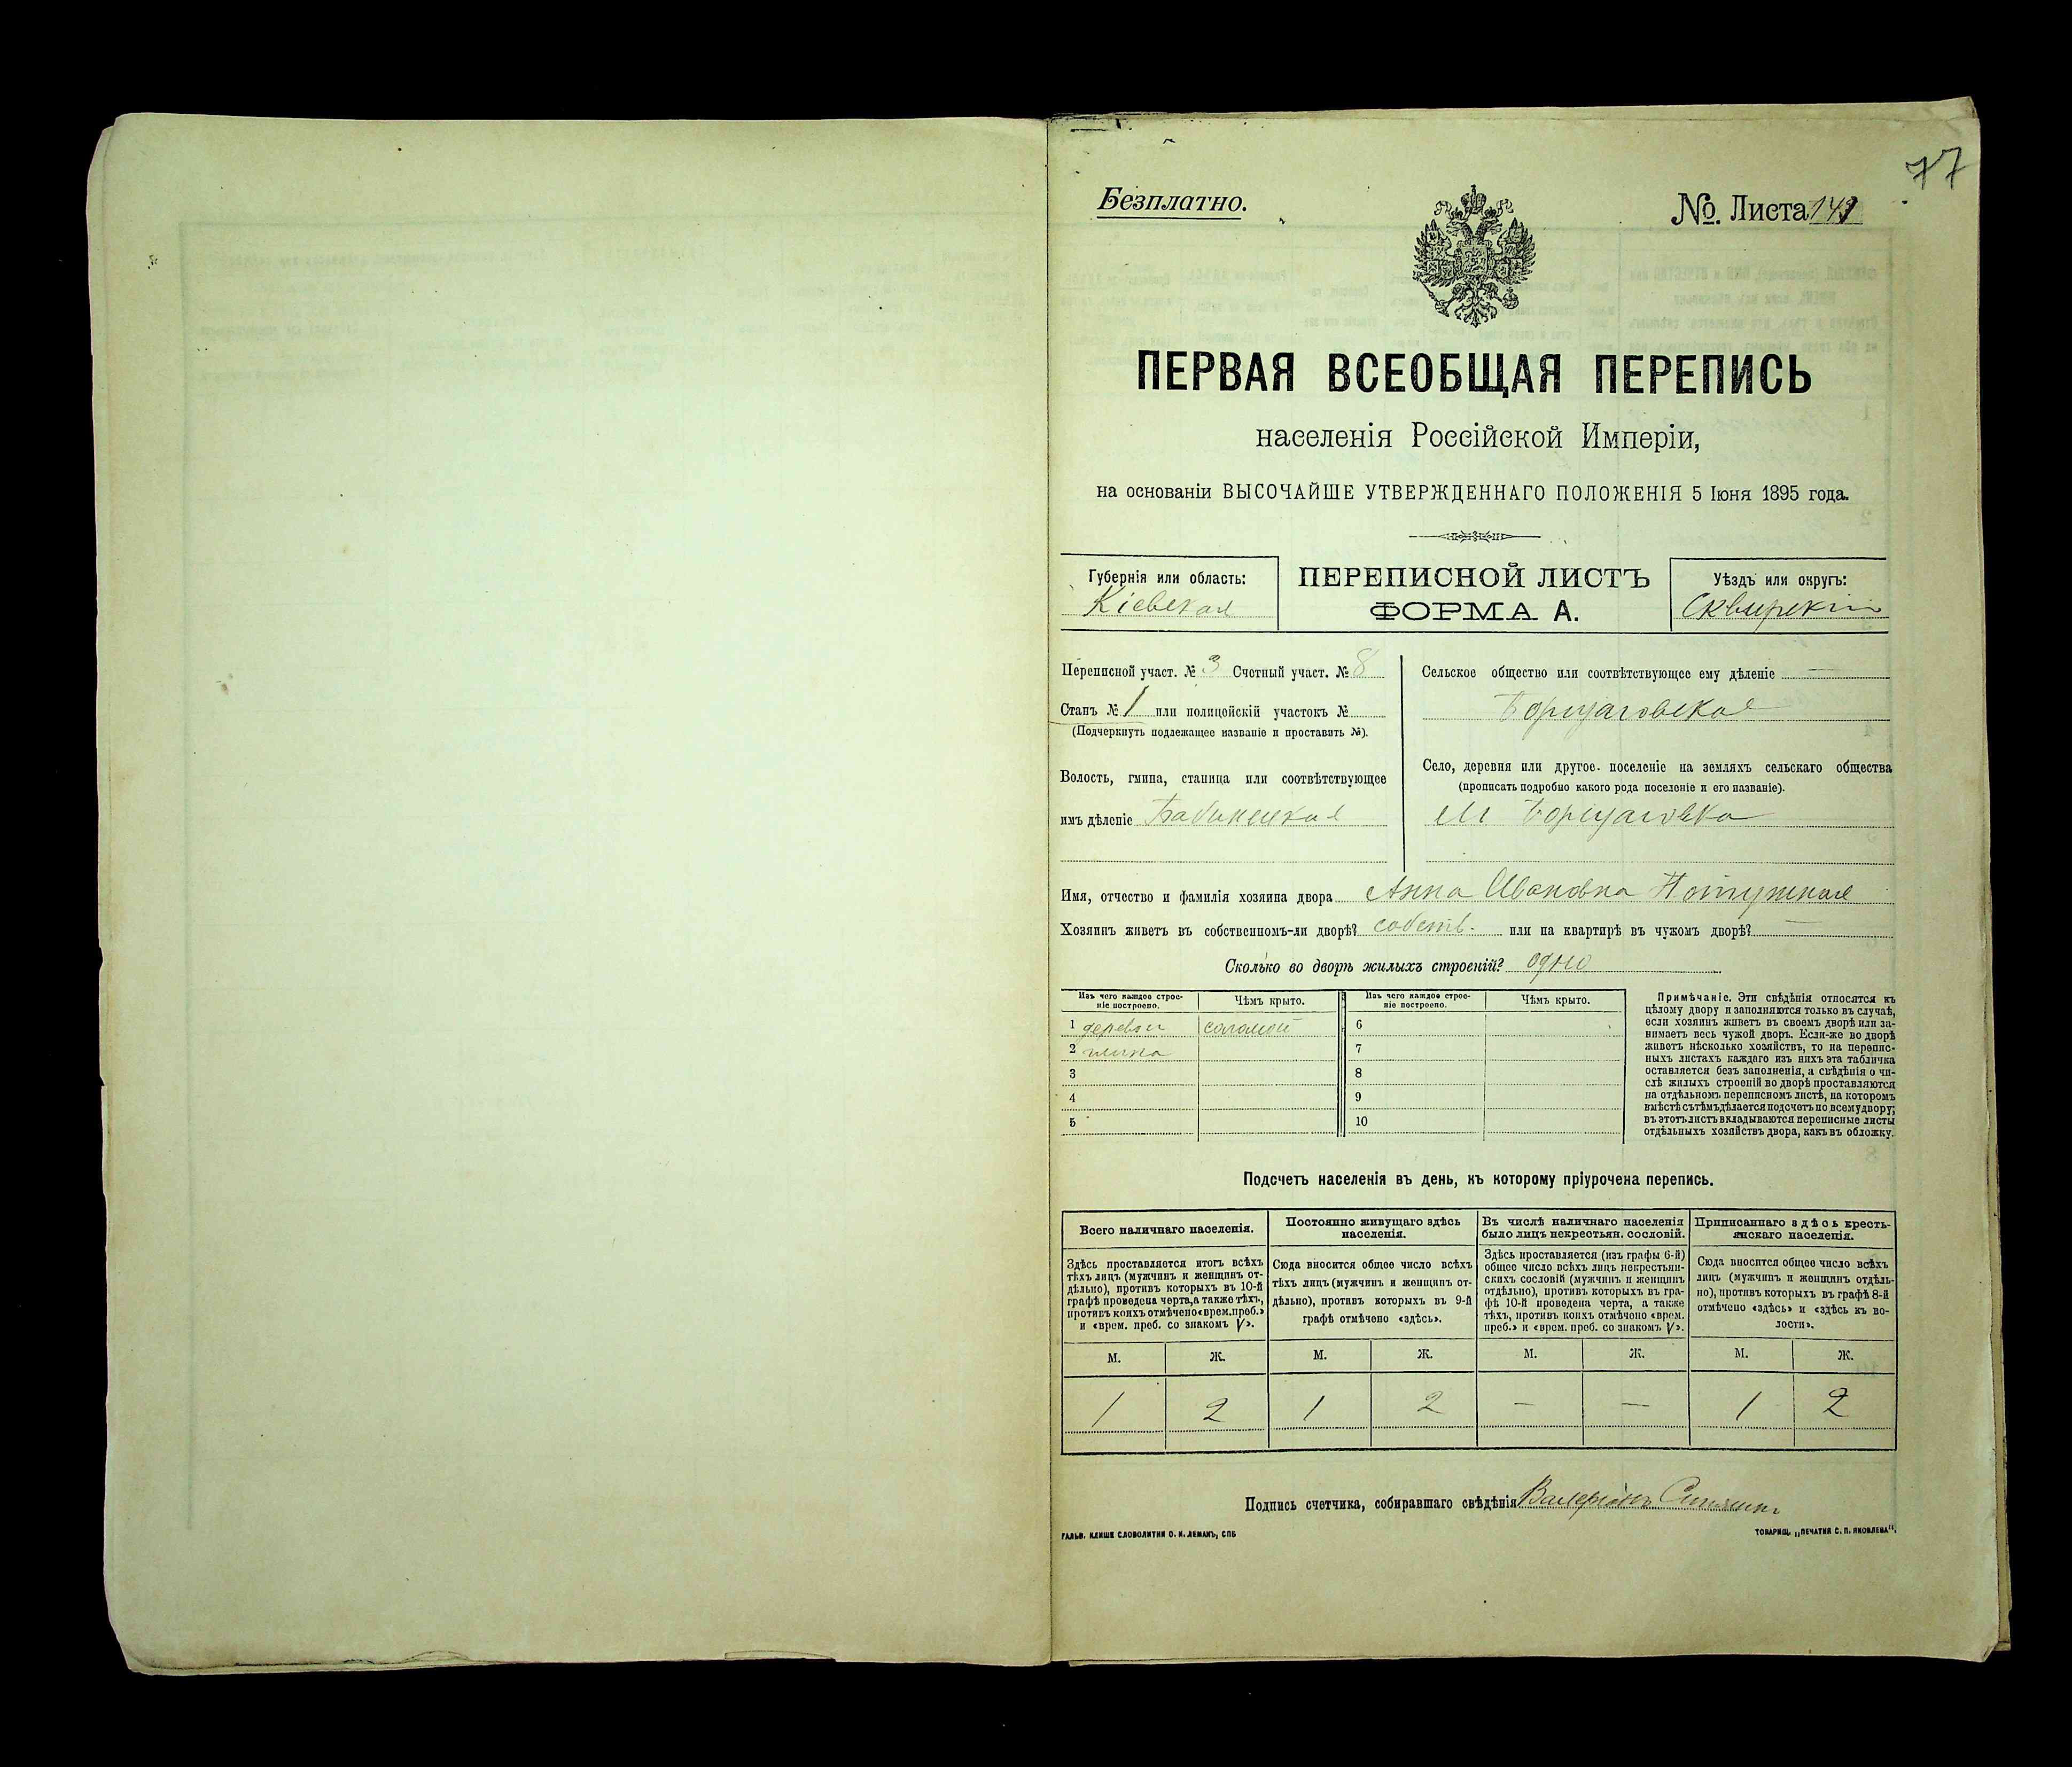 77
Безплатно.
№. Листа
ПЕРВАЯ ВСЕОБЩАЯ ПЕРЕПИСЬ
населенія Россійской Имперіи,
на основаніи ВЫСОЧАЙШЕ УТВЕРЖДЕННАГО ПОЛОЖЕНІЯ 5 Іюня 1895 года.
Губернія или область:
Кіевская
ПЕРЕПИСНОЙ ЛИСТЪ
ФОРМА А.
Уѣздъ или округъ:
Сквирскій
Переписной участ. № 3 Счетный участ. № 8
Станъ № 1 или полицойскій участокъ №
(Подчеркнуть подлежащее названіе и проставить №).
Волость, гмина, станица или соотвѣтствующее
имъ дѣленіе Бабинецкая
Сельское общество или соотвѣтствующее ему дѣленіе —
Борщаговское
Село, деревня или другое поселеніе на земляхъ сельскаго общества
(прописать подробно какого рода поселеніе и его названіе).
М Борщаговка
Имя, отчество и фамилія хозяина двора Анна Ивановна
Хозяинъ живетъ въ собственномъ-ли дворѣ? собств. или на квартирѣ въ чужомъ дворѣ? —
Сколько во дворѣ жилыхъ строеній? одно
Изъ чего каждое строе-
ніе построено.
Чѣмъ крыто.
Изъ чего каждое строе-
ніе построено.
Чѣмъ крыто.
1 соломой 6
2 глина 7
3 8
4 9
5 10
Примѣчаніе. Эти свѣдѣнія относятся къ
цѣлому двору и заполняются только въ случаѣ,
если хозяинъ живетъ въ своемъ дворѣ или за-
нимаетъ весь чужой дворъ. Если-же во дворѣ
живетъ нѣсколько хозяйствъ, то на перепис-
ныхъ листахъ каждаго изъ нихъ эта табличка
оставляется безъ заполненія, а свѣдѣнія о чи-
слѣ жилыхъ строеній во дворѣ проставляются
на отдѣльномъ переписномъ листѣ, на которомъ
вмѣстѣ съ тѣмъ дѣлается подсчетъ по всему двору;
въ этотъ листъ вкладываются переписные листы
отдѣльныхъ хозяйствъ двора, какъ въ обложку.
Подсчетъ населенія въ день, къ которому пріурочена перепись.
Всего наличнаго населенія.
Здѣсь проставляется итогъ всѣхъ
тѣхъ лицъ (мужчинъ и женщинъ от-
дѣльно), противъ которыхъ въ 10-й
графѣ проведена черта, а также тѣхъ,
противъ коихъ отмѣчено «врем. преб.»
и «врем. преб. со знакомъ V».
Постоянно живущаго здѣсь
населенія.
Сюда вносится общее число всѣхъ
тѣхъ лицъ (мужчинъ и женщинъ от-
дѣльно), противъ которыхъ въ 9-й
графѣ отмѣчено «здѣсь».
Въ числѣ наличнаго населенія
было лицъ некрестьян. сословій.
Здѣсь проставляется (изъ графы 6-й)
общее число всѣхъ лицъ некрестьян-
скихъ сословій (мужчинъ и женщинъ
отдѣльно), противъ которыхъ въ гра-
фѣ 10-й проведена черта, а также
тѣхъ, противъ коихъ отмѣчено «врем.
преб.» и «врем. преб. со знакомъ V».
Приписаннаго здѣсь кресть-
янскаго населенія.
Сюда вносится общее число всѣхъ
лицъ (мужчинъ и женщинъ отдѣль-
но), противъ которыхъ въ графѣ 8-й
отмѣчено «здѣсь» и «здѣсь къ во-
лости».
М. Ж. М. Ж. М. Ж. М. Ж.
1 2 1 2 — — 1 2
Подпись счетчика, собиравшаго свѣдѣнія Валеріанъ
ГАЛЬВ. КЛИШЕ СЛОВОЛИТНИ О. И. ЛЕМАНЪ, СПБ
ТОВАРИЩ. „ПЕЧАТНЯ С. П. ЯКОВЛЕВА".